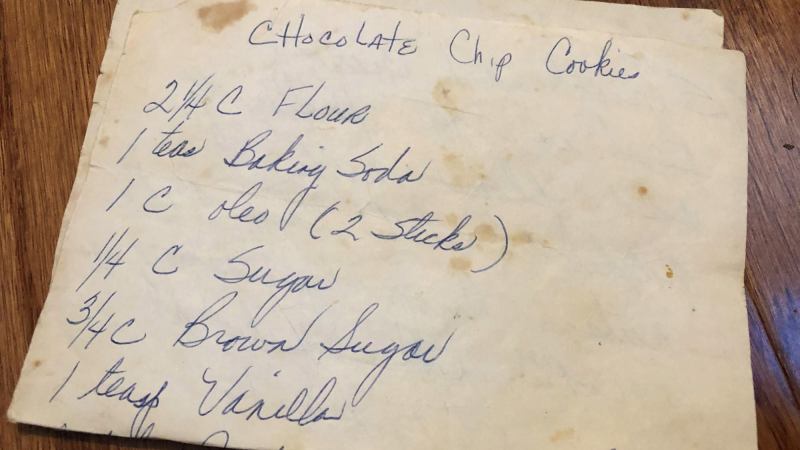 CHOCOLATE Chip Cookies
2 1/4 C FLOUR
1 teas Baking Soda
1 C oleo (2 Sticks)
1/4 C Sugar
3/4 C Brown Sugar
1 teasp Vanilla